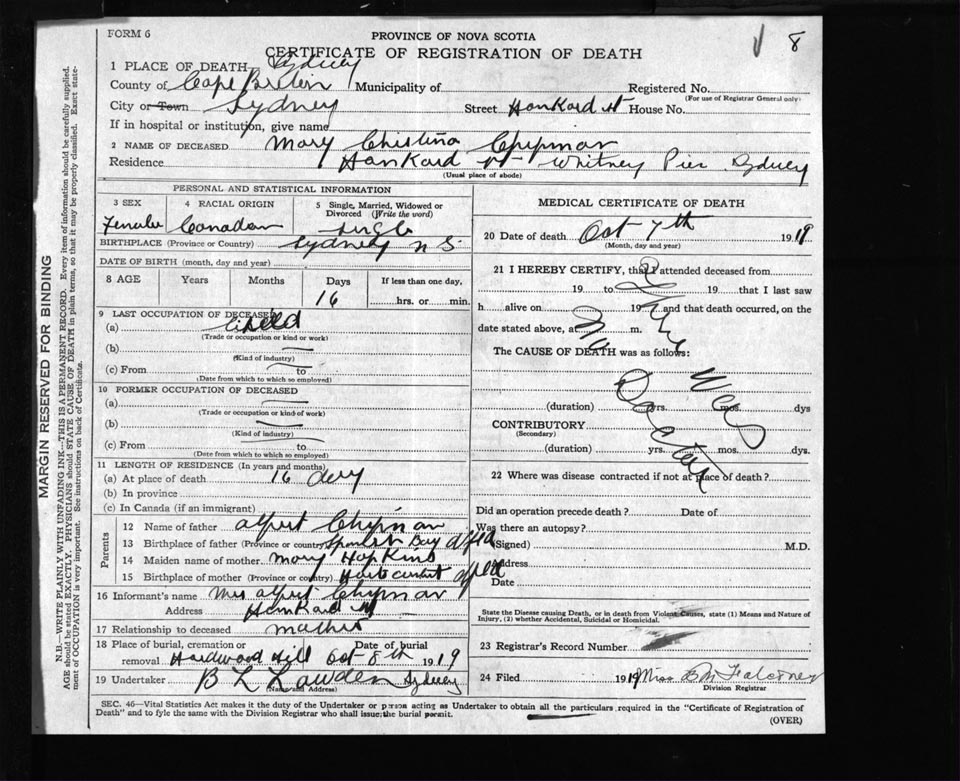 FORM 6
PROVINCE OF NOVA SCOTIA
8
CERTIFICATE OF REGISTRATION OF DEATH
1 PLACE OF DEATH Sydney
County of Cape Breton Municipality of Registered No.
(For use of Registrar General only)
City or Town Sydney Street Hankard St House No.
If in hospital or institution, give name
2 NAME OF DECEASED Mary Christina Chipman
Residence Hankard St Whitney Pier Sydney
(Usual place of abode)
PERSONAL AND STATISTICAL INFORMATION
3 SEX 4 RACIAL ORIGIN 5 Single, Married, Widowed or Divorced (Write the word)
Female Canadian Single
BIRTHPLACE (Province or Country) Sydney N S.
DATE OF BIRTH (month, day and year)
8 AGE Years Months Days If less than one day,
16 hrs. or min.
9 LAST OCCUPATION OF DECEASED
(a) Child
(Trade or occupation or kind or work)
(b)
(Kind of industry)
(c) From to
(Date from which to which so employed)
10 FORMER OCCUPATION OF DECEASED
(a)
(Trade or occupation or kind of work)
(b)
(Kind of industry)
(c) From to
(Date from which to which so employed)
11 LENGTH OF RESIDENCE (In years and months)
(a) At place of death 16 day
(b) In province
(c) In Canada (if an immigrant)
Parents
12 Name of father Alfert Chipman
13 Birthplace of father (Province or country) Spanish Bay
14 Maiden name of mother Mary Hopkins
15 Birthplace of mother (Province or country)
16 Informant's name Mrs Alfert Chipman
Address Hankard St
17 Relationship to deceased mother
18 Place of burial, cremation or Date of burial
removal Hardwood Hill Oct 8th 1919
19 Undertaker B L Lowden Sydney
(Name and Address)
MEDICAL CERTIFICATE OF DEATH
20 Date of death Oct 7th 1919
(Month, day and year)
21 I HEREBY CERTIFY, that I attended deceased from
19 to 19 that I last saw
h alive on 19 and that death occurred, on the
date stated above, at m.
The CAUSE OF DEATH was as follows:
There Was
No Doctor
(duration) yrs. mos. dys
CONTRIBUTORY
(Secondary)
(duration) yrs. mos. dys.
22 Where was disease contracted if not at place of death?
Did an operation precede death? Date of
Was there an autopsy?
(Signed) M.D.
Address
Date
State the Disease causing Death, or in death from Violent Causes, state (1) Means and Nature of
Injury, (2) whether Accidental, Suicidal or Homicidal.
23 Registrar's Record Number
24 Filed 1919 Miss B M Falconer
Division Registrar
SEC. 46—Vital Statistics Act makes it the duty of the Undertaker or person acting as Undertaker to obtain all the particulars required in the "Certificate of Registration of
Death" and to fyle the same with the Division Registrar who shall issue the burial permit.
(OVER)
MARGIN RESERVED FOR BINDING
N.B.—WRITE PLAINLY WITH UNFADING INK—THIS IS A PERMANENT RECORD. Every item of information should be carefully supplied.
AGE should be stated EXACTLY. PHYSICIANS should STATE CAUSE OF DEATH in plain terms, so that it may be properly classified. Exact state-
ment of OCCUPATION is very important. See instructions on back of Certificate.